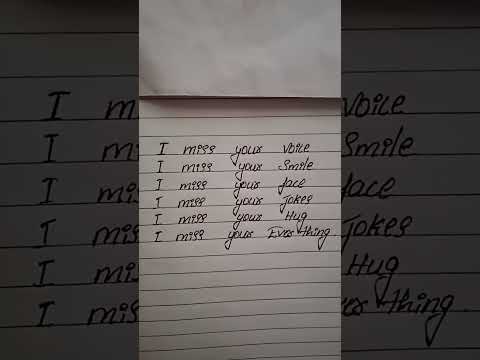 I miss your voice
I miss your Smile
I miss your face
I miss your jokes
I miss your Hug
I miss your Every thing